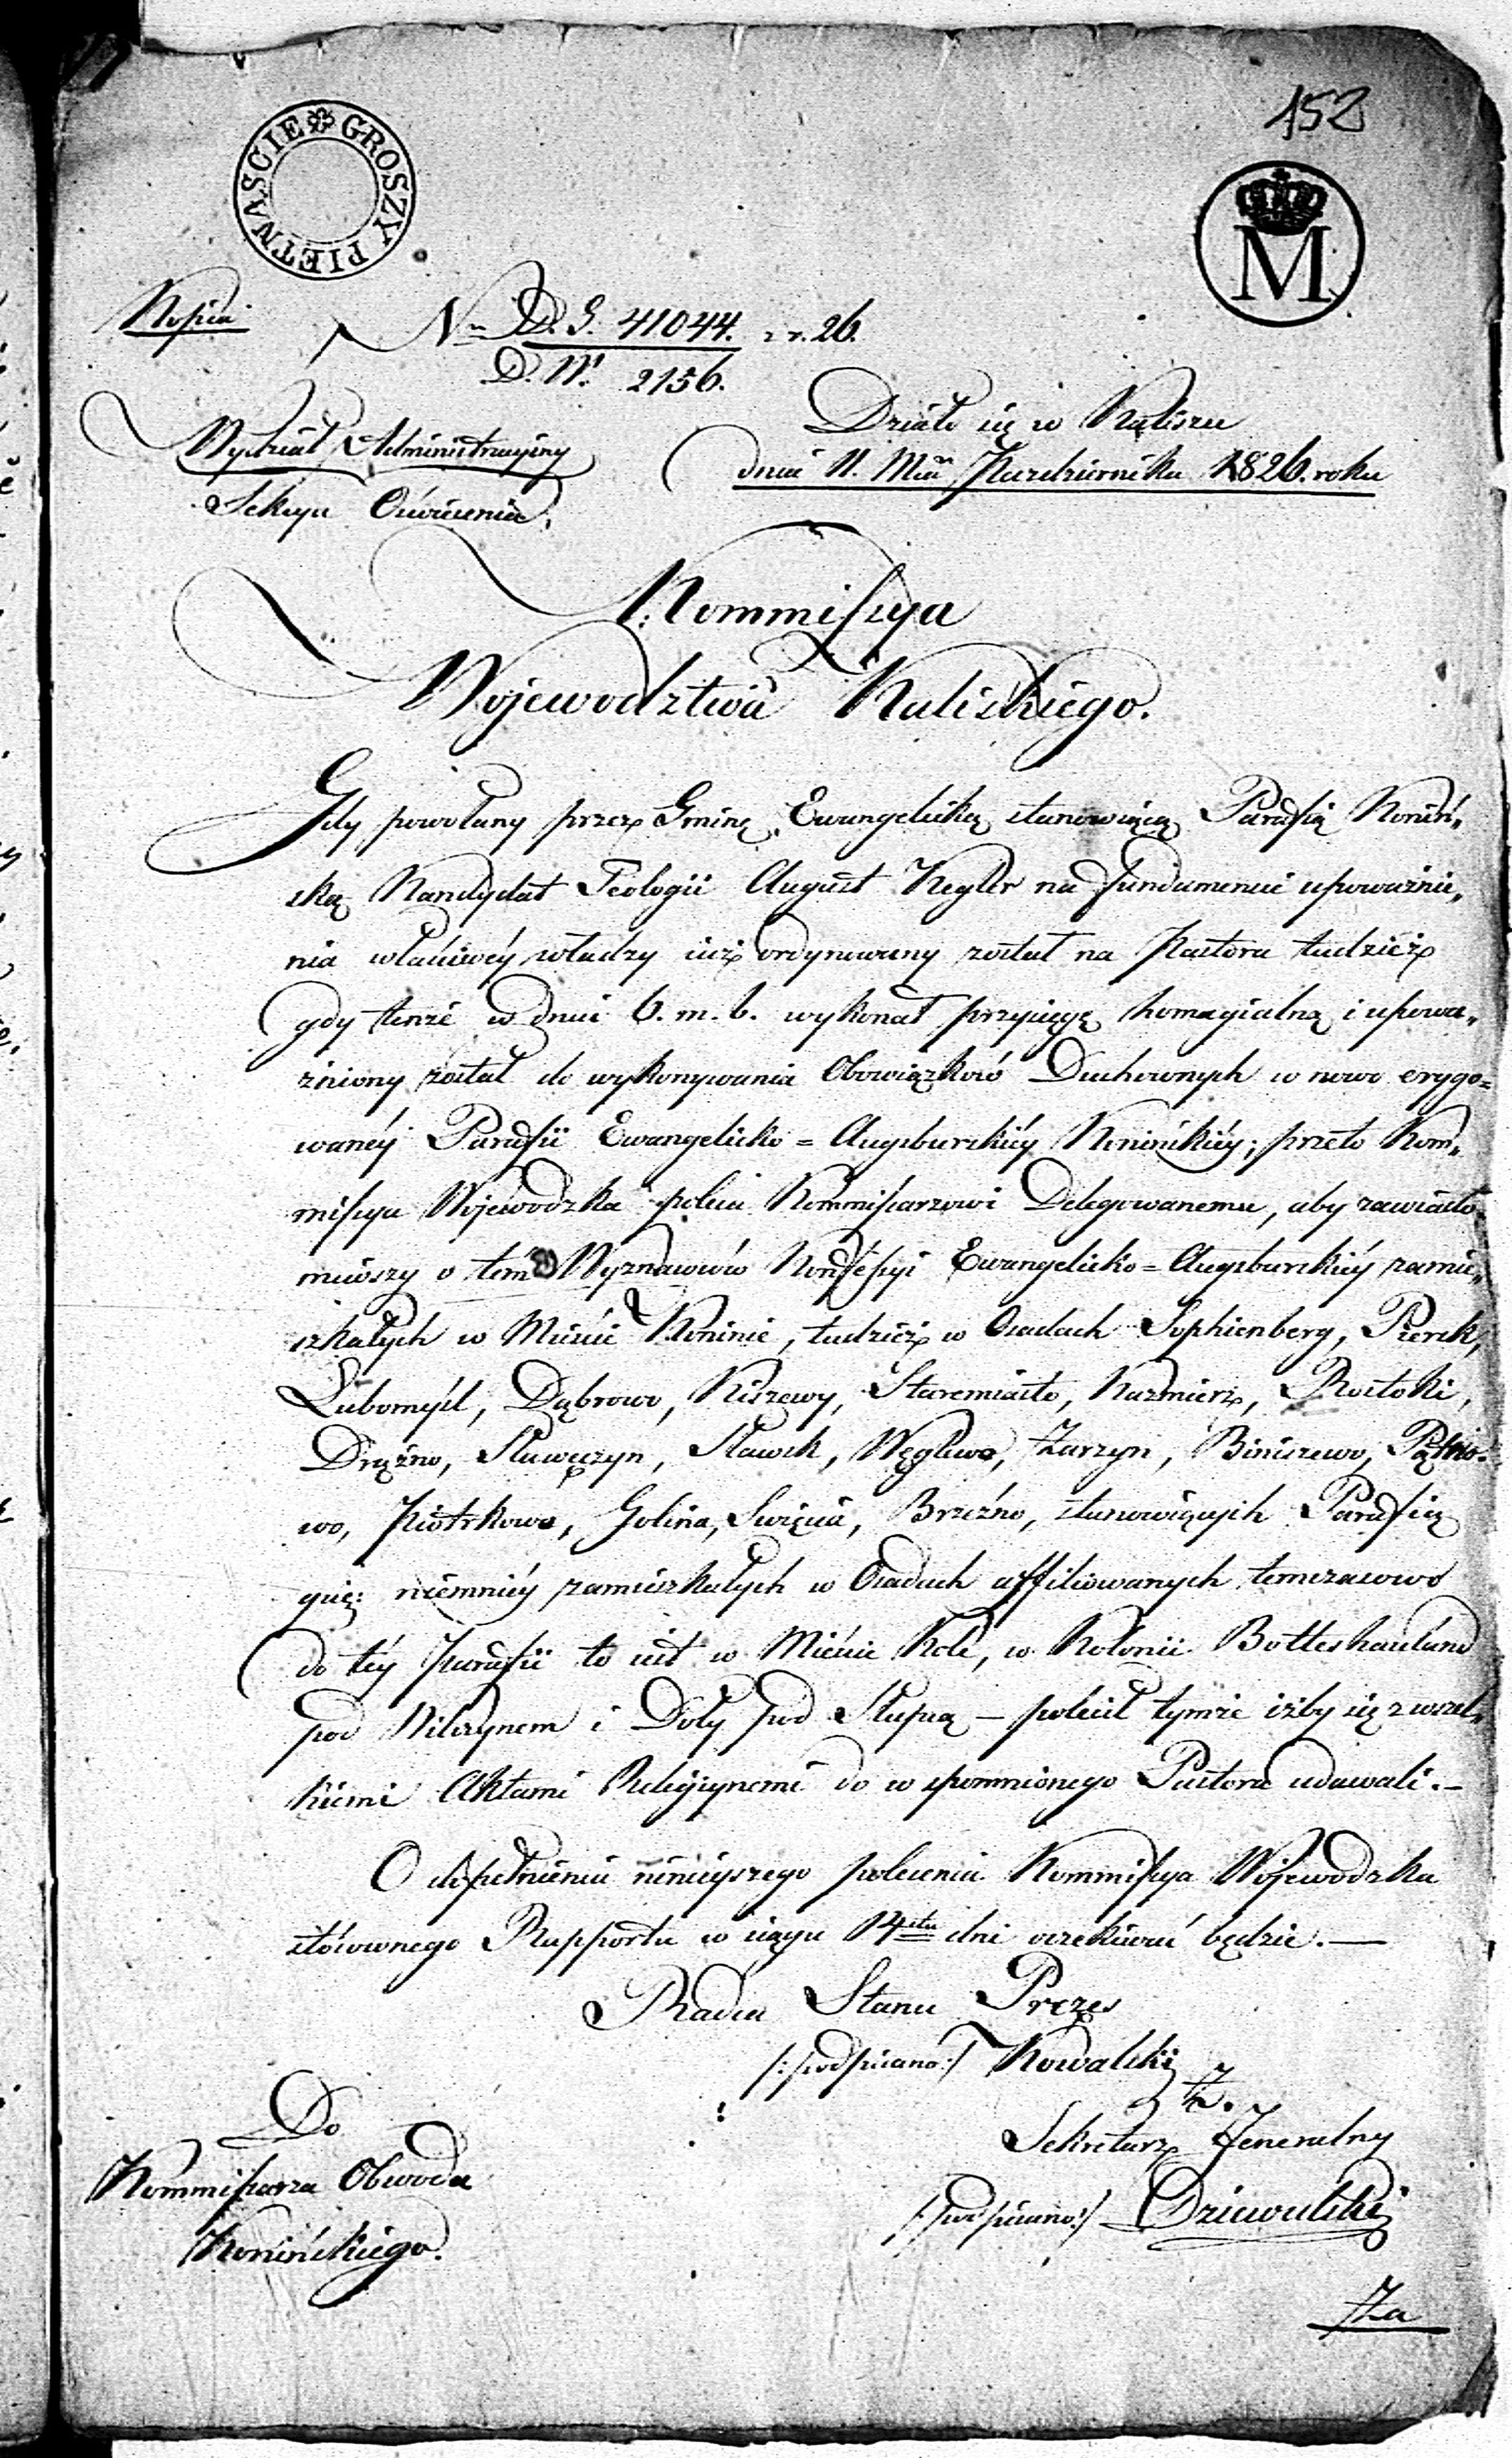 152
GROSZY PIETNASCIE
M
Kopia
Nro D.G. 41044. r. 26.
D.W. 2156.
Działo się w Kaliszu
Wydział Administracyiny
dnia 11. Mca Pazdziernika 1826. roku
Sekcya Oświecenia.
Kommissya
Wojewodztwa Kaliskiego.
Gdy powołany przez Gminę Ewangelicką stanowiącą Parafią Koniń„
ską Kandydat Teologii August Kegler na fundamencie upoważnie„
nia właściwéy władzy iuż ordynowany został na Pastora tudzież
gdy tenże w dniu 6. m. b. wykonał przysięgę homagialną i upowa„
żniony został do wykonywania Obowiązków Duchownych w nowo erygo=
wanéy Parafii Ewangelicko = Augsburskiéy Konińskiéy; przeto Kom„
missya Wojewodzka poleca Kommissarzowi Delegowanemu, aby zawiado„
miwszy o tém Wyznawców Konfessyi Ewangelicko = Augsburskiéy zamie„
szkałych w Mieście Koninie, tudzież w Osadach Sophienberg, Piersk,
Lubomyśl, Dąbrowo, Kiszewy, Staremiasto, Kazmierz, Rostoki,
Drążno, Sławęczyn, Sławsk, Węglewo, Żarzyn, Biniszewo, Pątno-
wo, Piotrkowo, Golina, Swięcia, Brzeźno, stanowiących Parafią
gdy niemniéy zamieszkałych w Osadach affiliowanych temczasowo
do téy Parafii to iest w Mieście Kole, w Kolonii Botteshauland
pod Wilczynem i Doły pod Słupcą – polecił tymże iżby się z wszel„
kiemi Aktami Religiynemi do wspomnionego Pastora udawali. –
O dopełnieniu ninieyszego polecenia Kommissya Wojewodzka
stósownego Rapportu w ciągu 14stu dni oczekiwać będzie. —
Radca Stanu Prezes
/: podpisano :/ Kowalski
Z.
Do
Sekretarz Jeneralny
Kommissarza Obwodu
/: podpisano :/ Dziewulski
Konińskiego.
Za